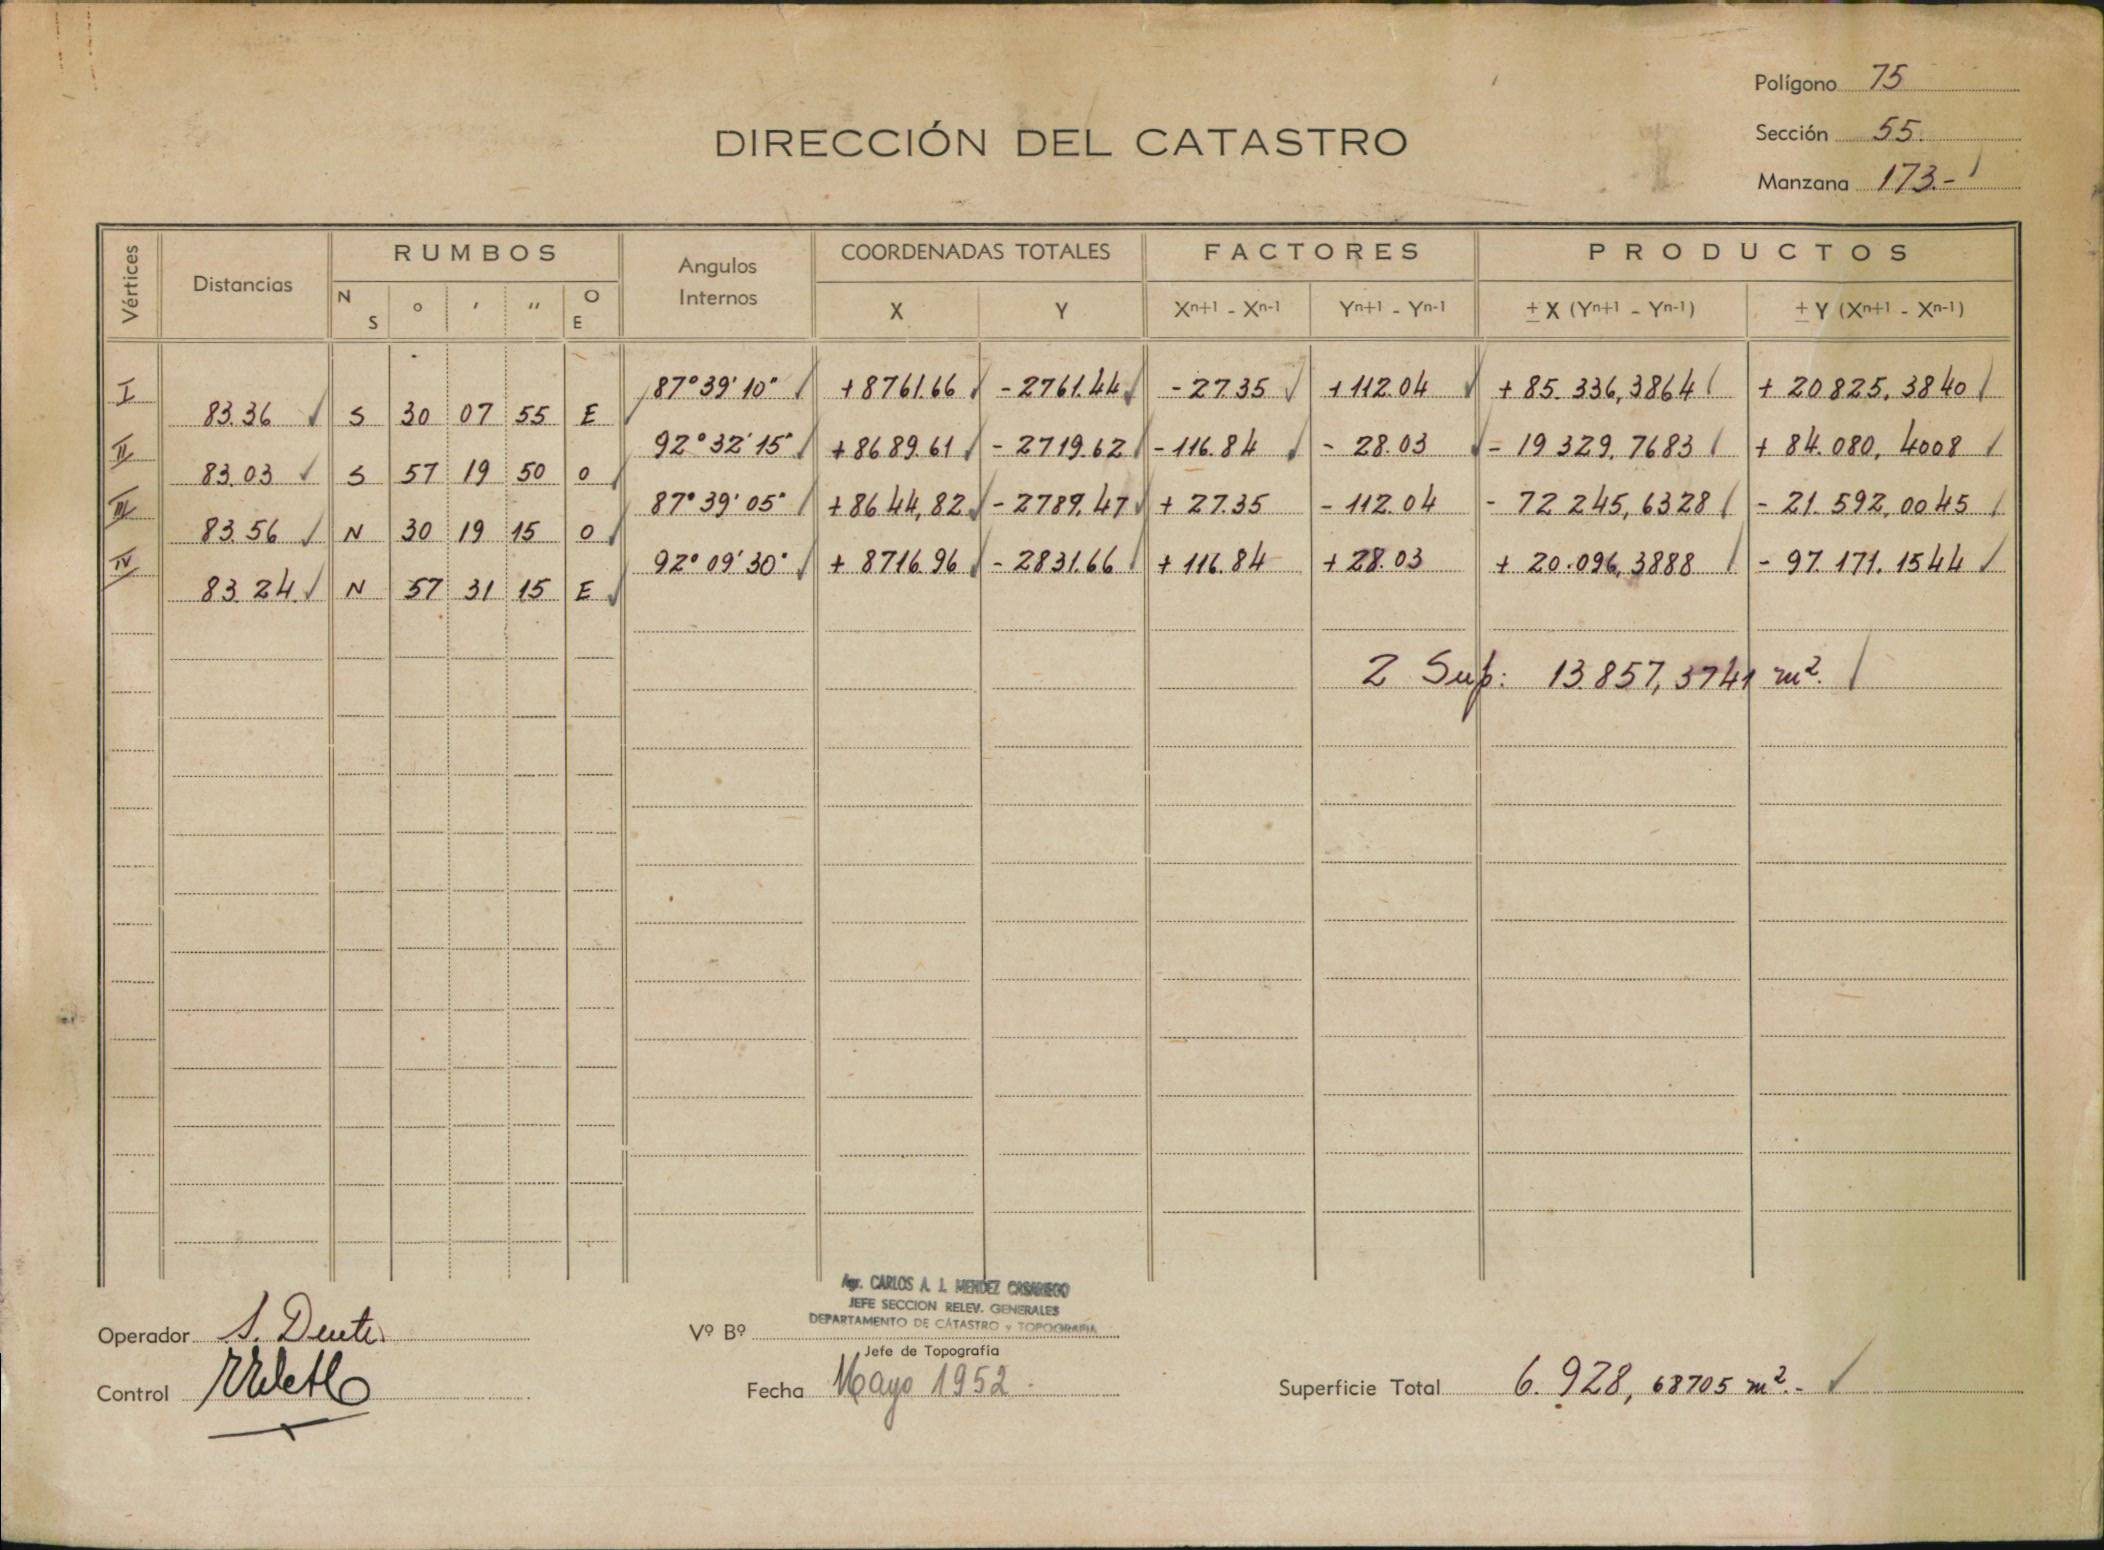 Polígono 75
Sección 55.
Manzana 173.-
DIRECCIÓN DEL CATASTRO
Vértices Distancias RUMBOS Angulos Internos COORDENADAS TOTALES FACTORES PRODUCTOS
N S ° ' " O E X Y Xn+1 - Xn-1 Yn+1 - Yn-1 ± X (Yn+1 - Yn-1) ± Y (Xn+1 - Xn-1)
I 87°39'10" +8761.66 -2761.44 -27.35 +112.04 +85.336,3864 +20825,3840
83.36 S 30 07 55 E
II 92°32'15" +8689.61 -2719.62 -116.84 -28.03 -19329,7683 +84.080,4008
83.03 S 57 19 50 O
III 87°39'05" +8644,82 -2789.47 +27.35 -112.04 -72245,6328 -21.592,0045
83.56 N 30 19 15 O
IV 92°09'30" +8716.96 -2831.66 +116.84 +28.03 +20.096,3888 -97171.1544
83.24 N 57 31 15 E
2 Sup: 13.857,3741 m².
Agr. CARLOS A. J. MENDEZ CASARIEGO
JEFE SECCION RELEV. GENERALES
DEPARTAMENTO DE CATASTRO y TOPOGRAFIA
Operador Vº Bº
Jefe de Topografía
Control Fecha Mayo 1952. Superficie Total 6.928,68705 m².-